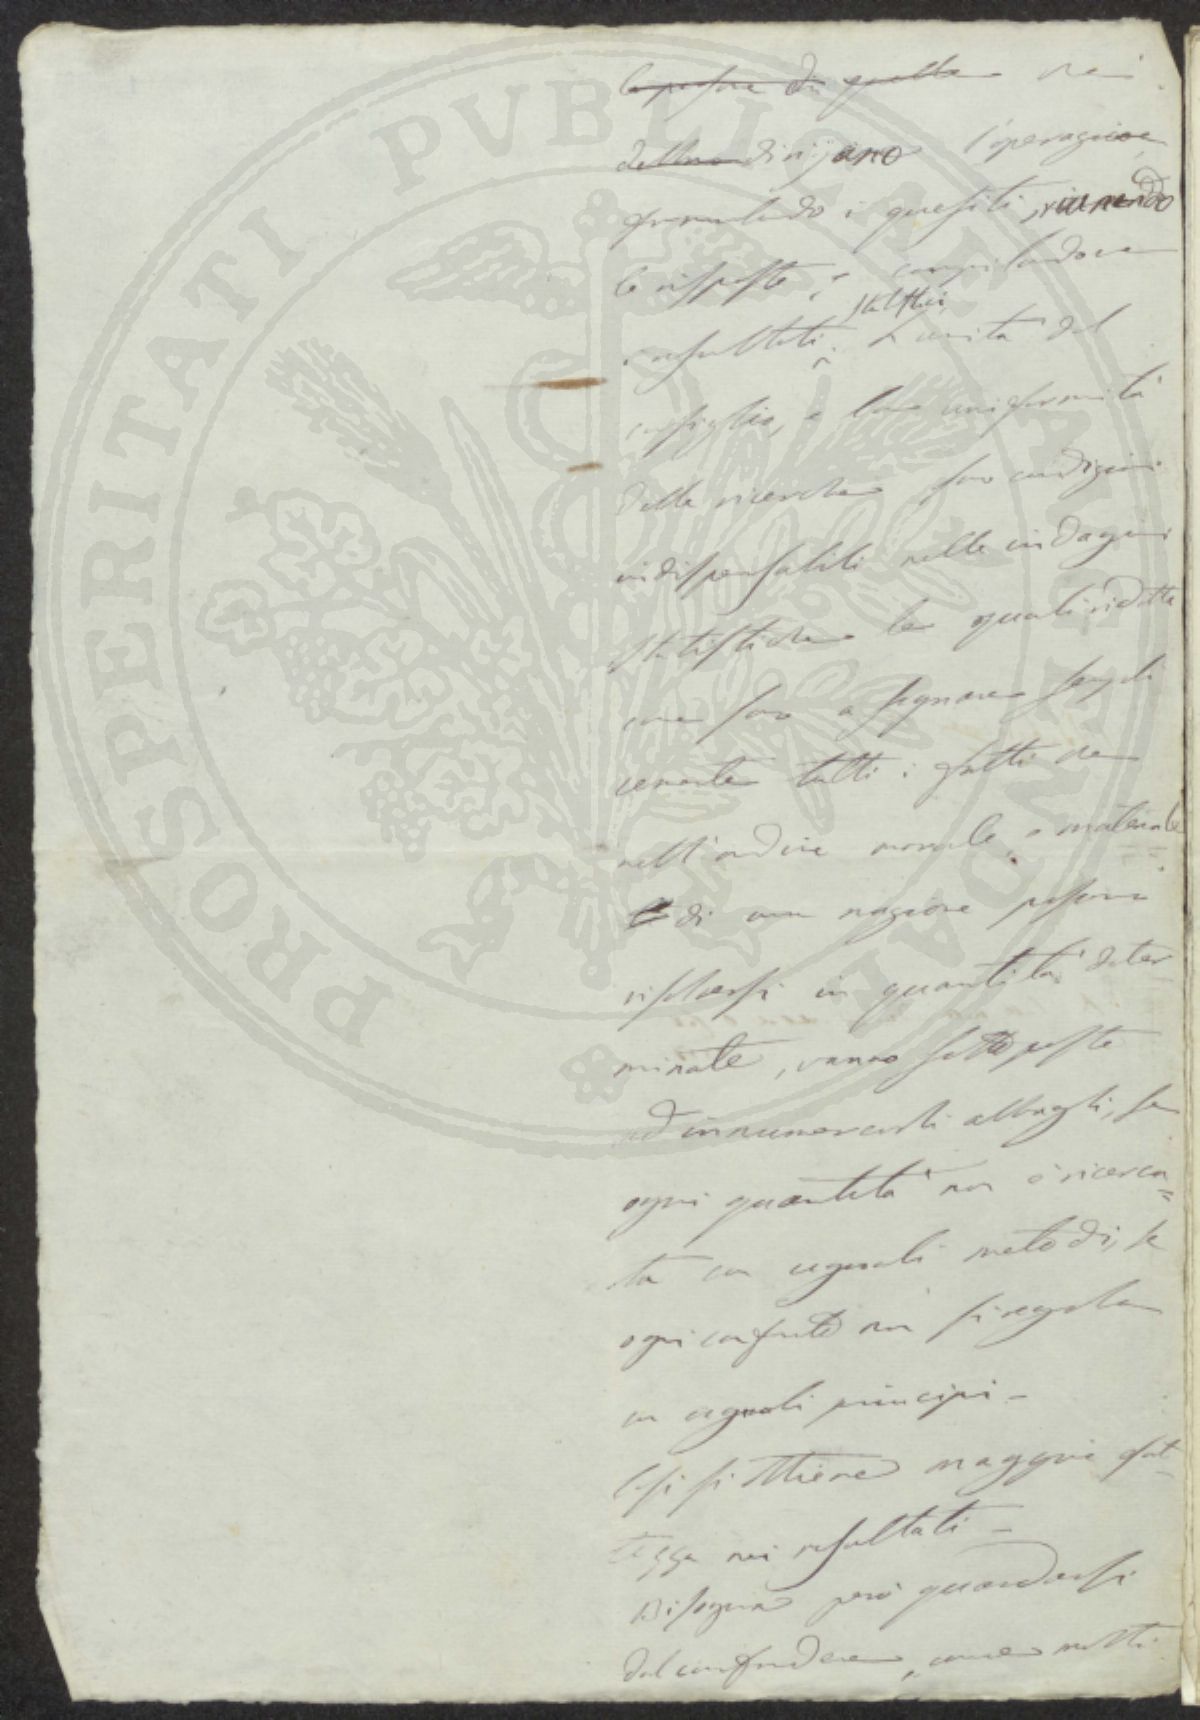 PROSPERITATI PVBLICAE AVGENDAE
le persone di quelle
dirijano l'operazione
formulando i quesiti, riunendo
le risposte, e compilandone
i risultati statistici. L'unità del
consiglio, e la uniformità
delle ricerche son condizioni
indispensabili nelle indagini
statistiche le quali ridotte
come sono a segnare sempli
cemente tutti i fatti che
nell'ordine morale, e materiale
di una nazione possono
risolversi in quantità deter
minate, vanno sottoposte
ad innumerevoli abbagli, se
ogni quantità non è ricerca=
ta con uguali metodi, se
ogni confronto non si regola
con uguali principi -
Così si ottiene maggior esat
tezza nei risultati -
Bisogna però guardarsi
dal confondere, come molti